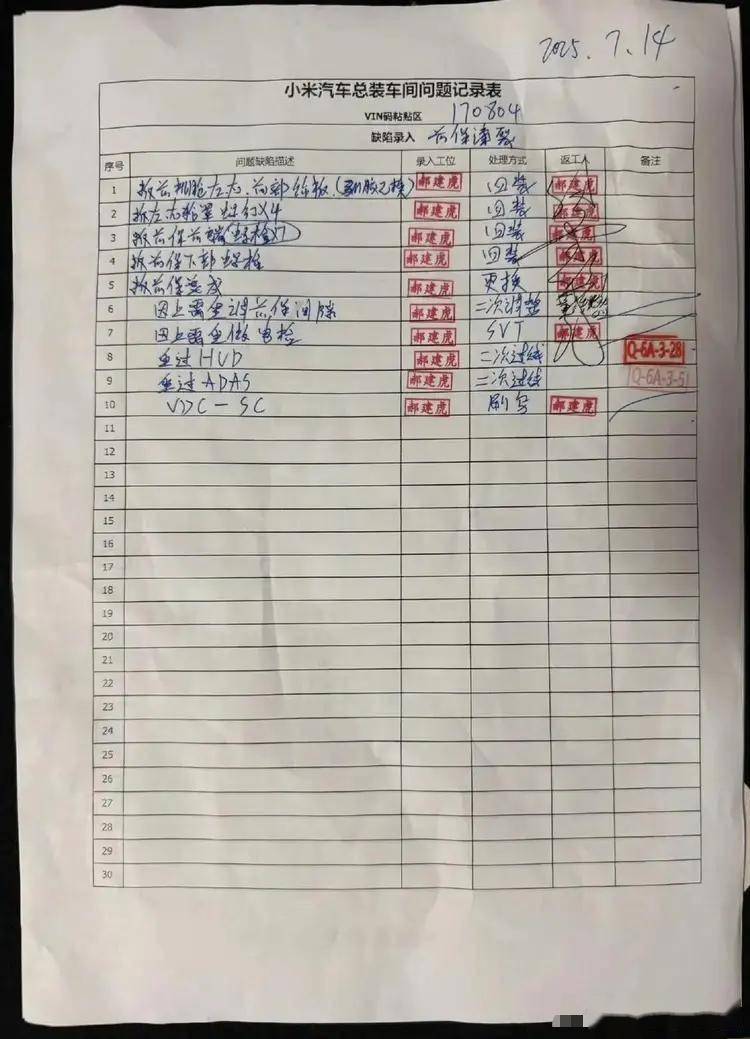 2025.7.14
小米汽车总装车间问题记录表
VIN码粘贴区 170804
缺陷录入 前保漆裂
序号 问题缺陷描述 录入工位 处理方式 返工人 备注
1 拆前机舱左右.前部饰板. 郝建虎 回装 郝建虎
2 拆左右轮罩螺钉X4 郝建虎 回装 郝建虎
3 拆前保前端螺栓X7 郝建虎 回装 郝建虎
4 拆前保下部螺栓 郝建虎 回装 郝建虎
5 拆前保总成 郝建虎 更换 郝建虎
6 因上需重调前保间隙 郝建虎 二次调整
7 因上需重做电检 郝建虎 SVT 郝建虎
8 重过HUD 郝建虎 二次过线 Q-6A-3-28
9 重过ADAS 郝建虎 二次过线 Q-6A-3-5
10 VDC-SC 郝建虎 刷写 郝建虎
11
12
13
14
15
16
17
18
19
20
21
22
23
24
25
26
27
28
29
30